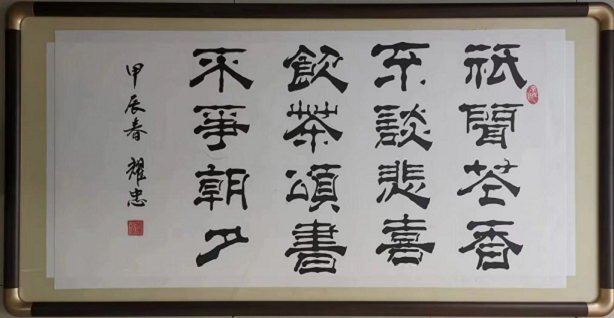 祇聞花香
不談悲喜
飲茶頌書
不爭朝夕
甲辰春 耀忠